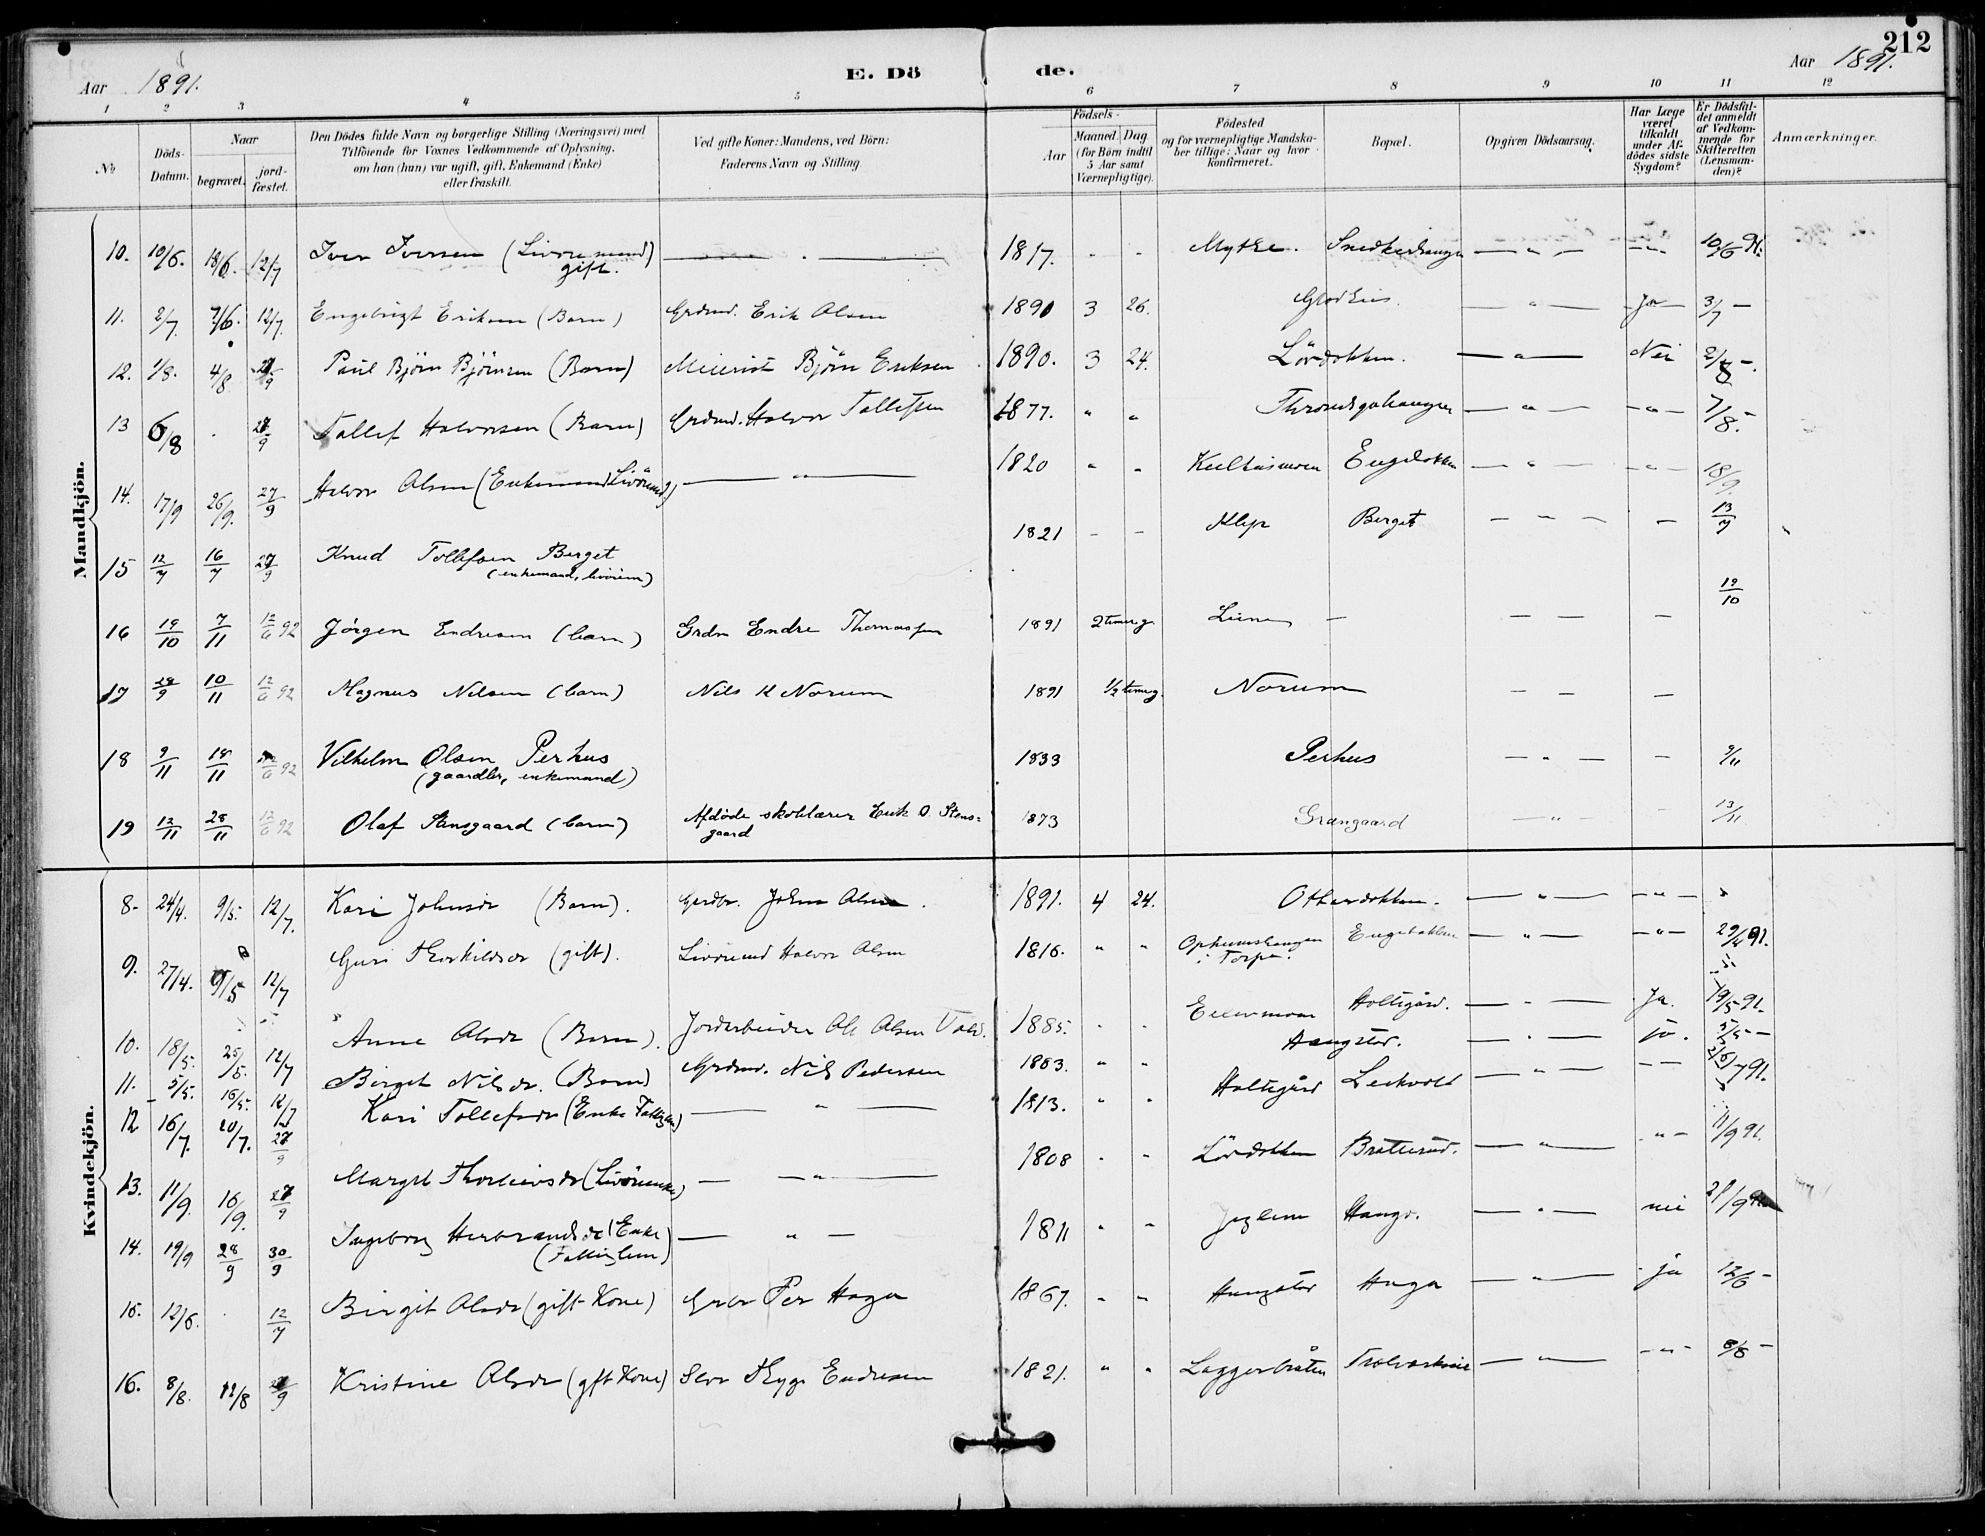 212
Aar 1891.
E. Dö de.
Aar 1891.
1 2 3 4 5 6 7 8 9 10 11 12
№
Döds-Datum.
Naar
begravet.
jordfæstet.
Den Dödes fulde Navn og borgerlige Stilling (Næringsvei) med
Tilföiende for Voxnes Vedkommende af Oplysning,
om han (hun) var ugift, gift, Enkemand (Enke)
eller fraskilt.
Ved gifte Koner: Mandens, ved Börn:
Faderens Navn og Stilling.
Födsels-
Aar
Maaned. Dag
(for Börn indtil
5 Aar samt
Værnepligtige).
Födested
og for værnepligtige Mandskaber tillige: Naar og hvor
konfirmeret.
Bopæl.
Opgiven Dödsaarsag.
Har Læge
været
tilkaldt
under Afdödes sidste
Sygdom?
Er Dödsfaldet anmeldt
af Vedkommende for
Skifteretten
(Lensmanden)?
Anmærkninger.
Mandkjön.
10. 10/6. 18/6. 12/7 Iver Iversen (Livörsmand) gift. — " — 1817. - - Mytke. — " — — " — 10/6 91.
11. 2/7. 7/6. 12/7. Engebrigt Eriksen (Barn) Grdmd. Erik Olsen 1890 3 26. — " — Ja 3/7 —
12. 1/8. 4/8 27/9 Paul Björn Björnsen (Barn) Meierist Björn Eriksen 1890. 3 24. Lördokken. — " — Nei 2/8 —.
13 6/8 . 27/9 Tollef Halvorsen (Barn) Grdmd. Halvor Tollefsen 1877. " " — " — — " — 7/8. —
14. 17/9 26/9. 27/9 Halvor Olsen (Enkemand Livörmd.) — " — 1820 " " — " — — " — 18/9.
15 12/7 16/7 27/9 Knud Tollefsen Berget (enkemand, livörem) 1821 - - Klep Berget — — — — 13/7
16 19/10 7/11 12/6 92 Jörgen Endresen (barn) Grdm Endre Thomassen 1891 2 time g. — — — — 19/10
17 29/9 10/11 12/6 92 Magnus Nelsen (barn) Nils K Norum 1891 1/2 time g. Norum — — —
18 9/11 18/11 12/6 92 Vilhelm Olsen Perhus (gaardbr, enkemand) 1833 Perhus — " — — 9/11
19 12/11 28/11 12/6 92 Olaf Stensgaard (barn) Afdöde skolelærer Erik O. Stensgaard 1873 Grangaard — " — 13/11
Kvindekjön.
8. 24/4. 9/5. 12/7. Kari Johnsdr (Barn). Gardbr. John Olsen. 1891. 4 24. — " — — " —
9. 27/4. 9/5 12/7 Guri Thorkildsdr (gift). Livörmd Halvor Olsen 1816. " " i Torpe. — " — — " — 29/4 91.
10. 18/5. 25/5 12/7 Anne Olsdr (Barn). Jordarbeider Ole Olsen 1885. - - Holtegård. — " — Ja. 19/5 91.
11. 5/5. 16/5. 12/7 Birget Nilsdr. (Barn) Grdmd. Nils Pedersen 1883. " " Haugstad. — " — ja. 5/5 —
12 16/7. 20/7. 27/9 Kari Tollefsdr (Enke — " — 1813. " " Holtegård — " — — —
13. 11/9. 16/9. 27/9 Margit Thorleivsdr (Livörenke) — " — 1808 - - Lördokken Bratterud. — " — " — 11/9 91.
14. 19/9 28/9 30/9 Ingeborg Herbrandsdr (Enke) (Fattiglem) — " — 1811 " " — " — nei 21/9 91.
15. 12/6. . 12/7 Birgit Olsdr (gift Kone) Grbr Per Haga 1867. " " Haugstad Haga — " — ja 12/6 —
16. 8/8. 12/8 27/9 Kristine Olsdr (gift Kone) Endresen 1821. " " — " — — " — 8/8 —